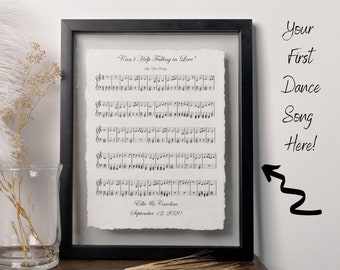 "Can't Help Falling in Love"
Ellis & Caroline
September 12, 2020
Your
First
Dance
Song
Here!